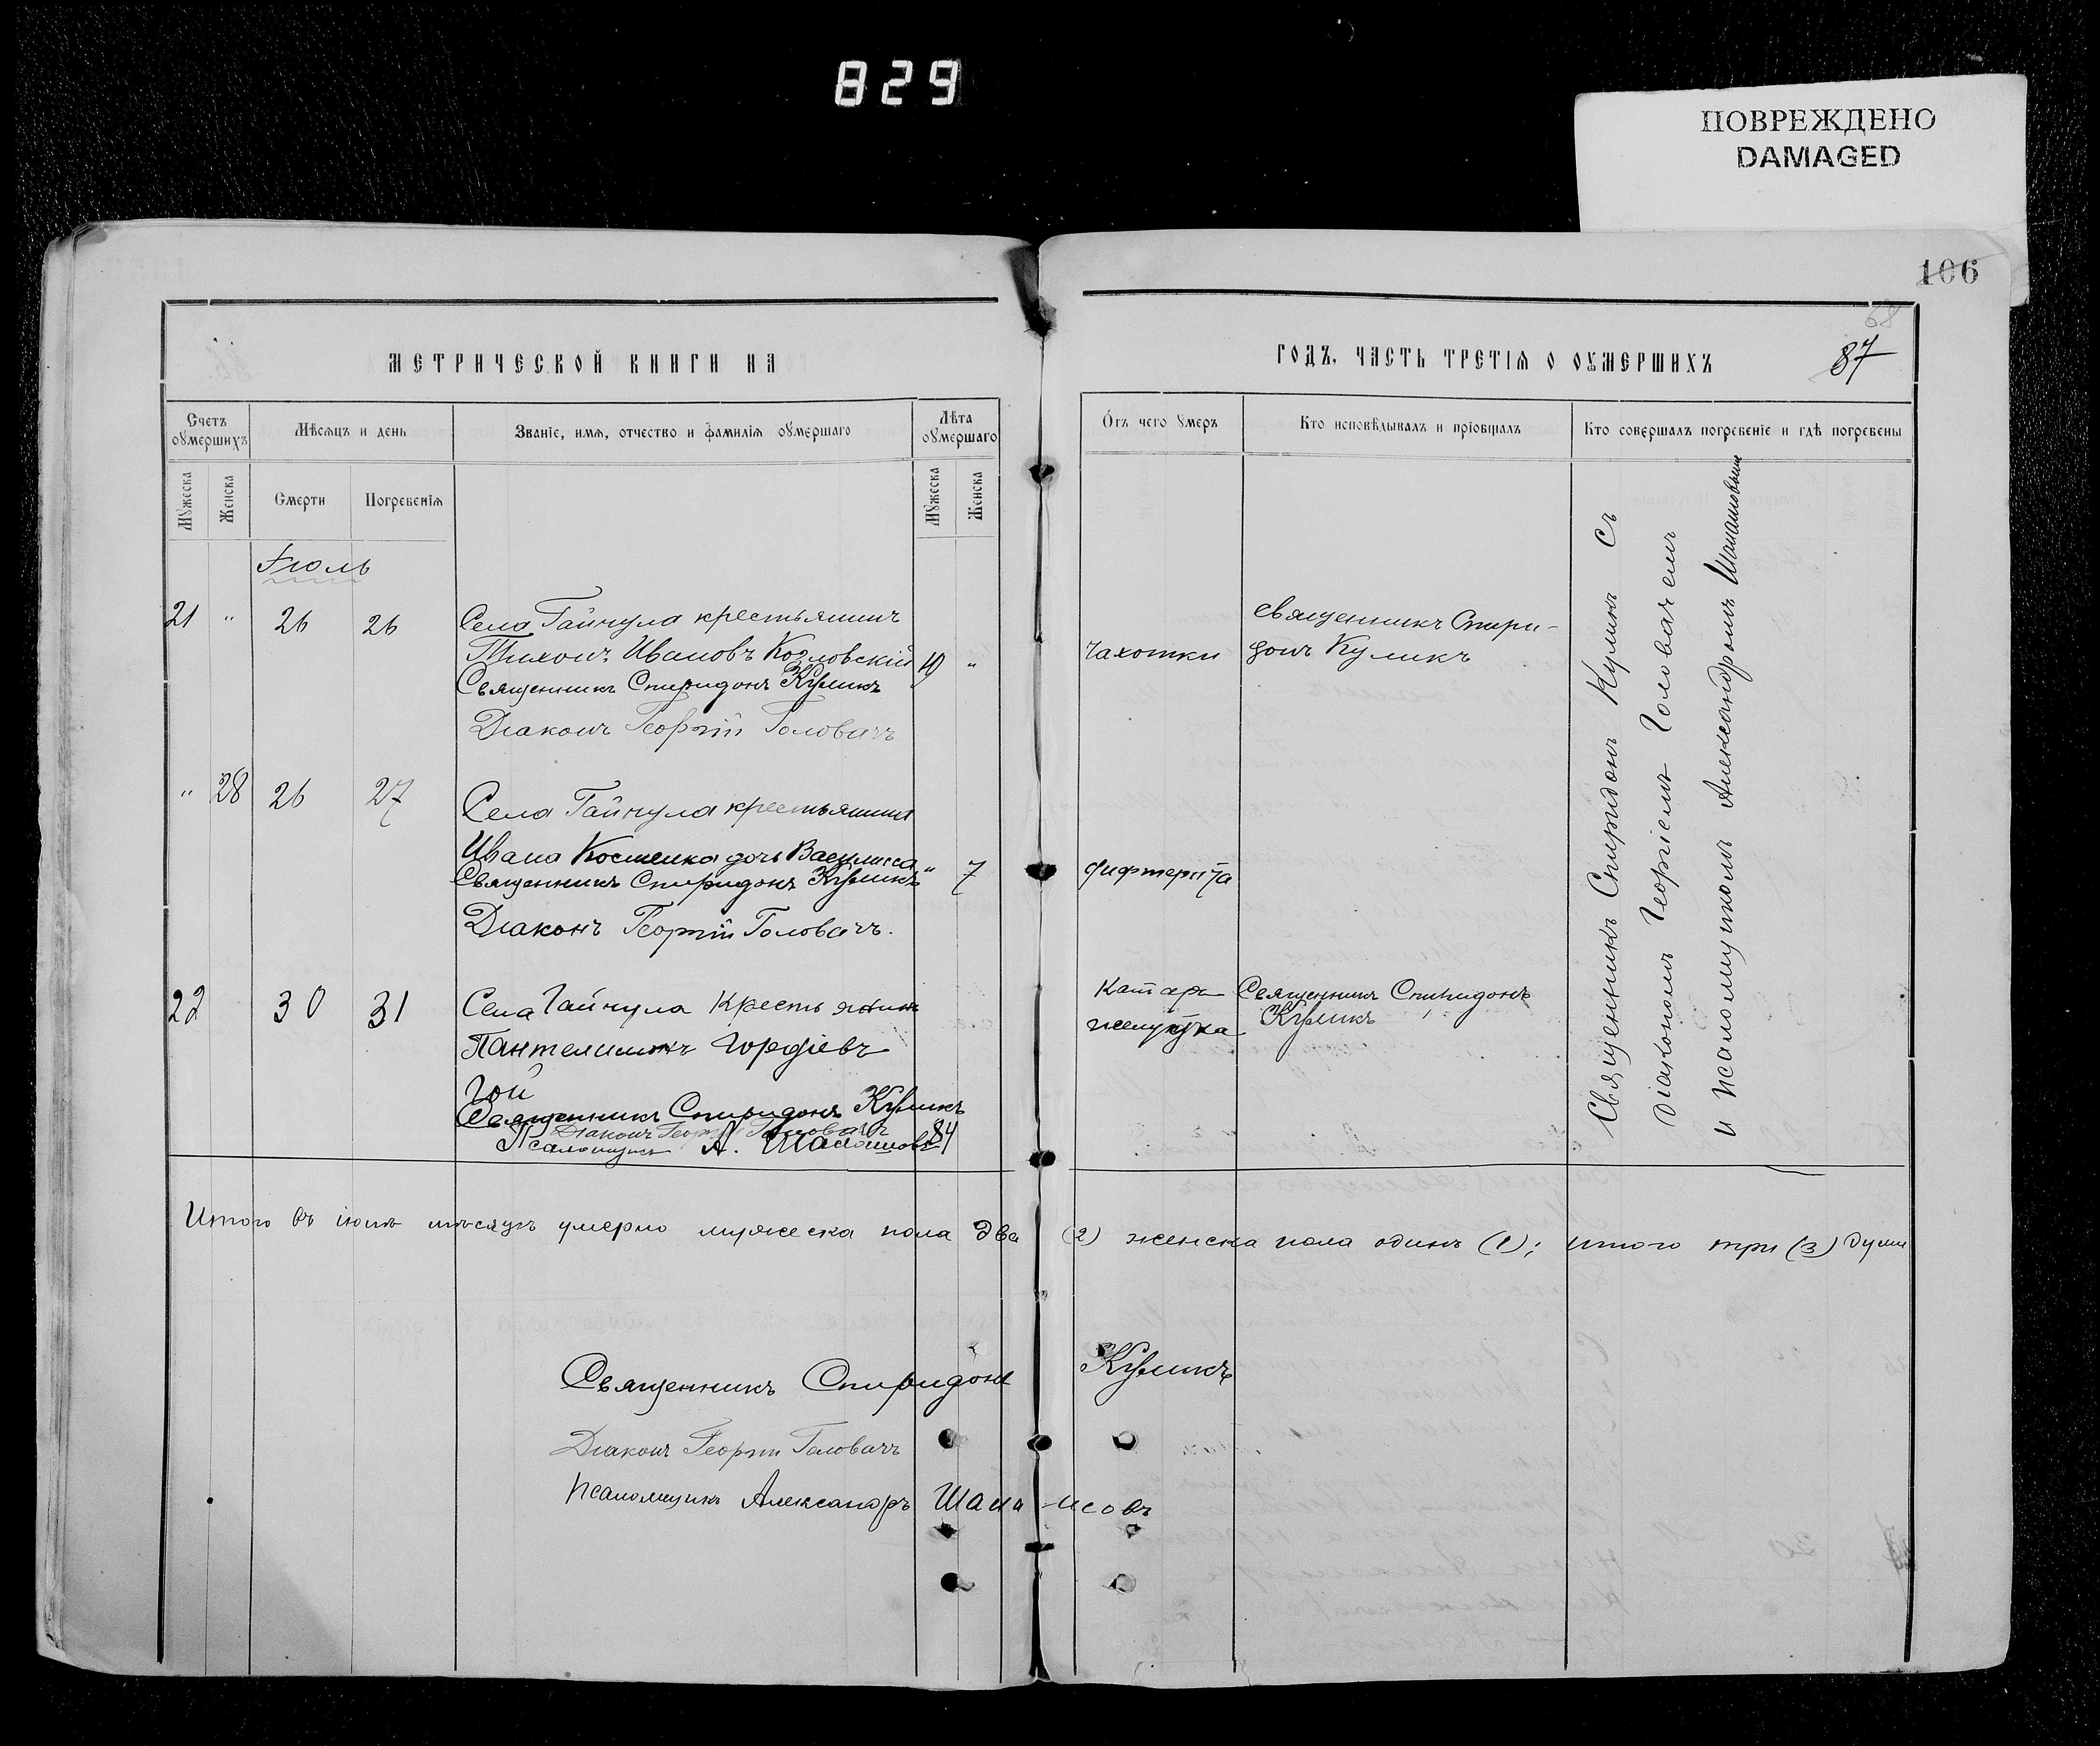 829
ПОВРЕЖДЕНО
DAMAGED
106
МЕТРИЧЕСКОЙ КНИГИ НА
ГОДЪ, ЧАСТЬ ТРЕТІЯ О ОУМЕРШИХЪ
68
87
Счетъ оумершихъ
Мѣсяцъ и день
Званіе, имя, отчество и фамилія оумершаго
Лѣта оумершаго
Отъ чего умеръ
Кто исповѣдывалъ и пріобщалъ
Кто совершалъ погребеніе и гдѣ погребены
Мужеска
Женска
Смерти
Погребенія
Мужеска
Женска
Іюль
21 " 26 26
Села Гайчула крестьянинъ
Тихонъ Ивановъ Козловскій "
Священникъ Спиридонъ Куликъ
Діаконъ Георгій Головачъ
Чахотки
священникъ Спири-
донъ Куликъ
" 28 26 27
Села Гайчула крестьянина
Ивана Костенка дочь Василисса " 7
Священникъ Спиридонъ Куликъ
Діаконъ Георгій Головачъ.
Дифтерита
22 30 31
Села Гайчула Крестьянинъ
Пантелимонъ Гордіевъ
Гой
Священникъ Спиридонъ Куликъ
Діаконъ Георгій Головачъ
Псаломщикъ А. Шаламовъ 84
Катаръ
желудка
Священникъ Спиридонъ
Куликъ
Священникъ Спиридонъ Куликъ съ
діакономъ Георгіемъ Головачемъ
и псаломщикомъ Александромъ
Итого въ іюлѣ мѣсяцѣ умерло мужеска пола два (2) женска пола одинъ (1); итого три (3) души
Священникъ Спиридонъ Куликъ
Діаконъ Георгій Головачъ
Псаломщикъ Александръ